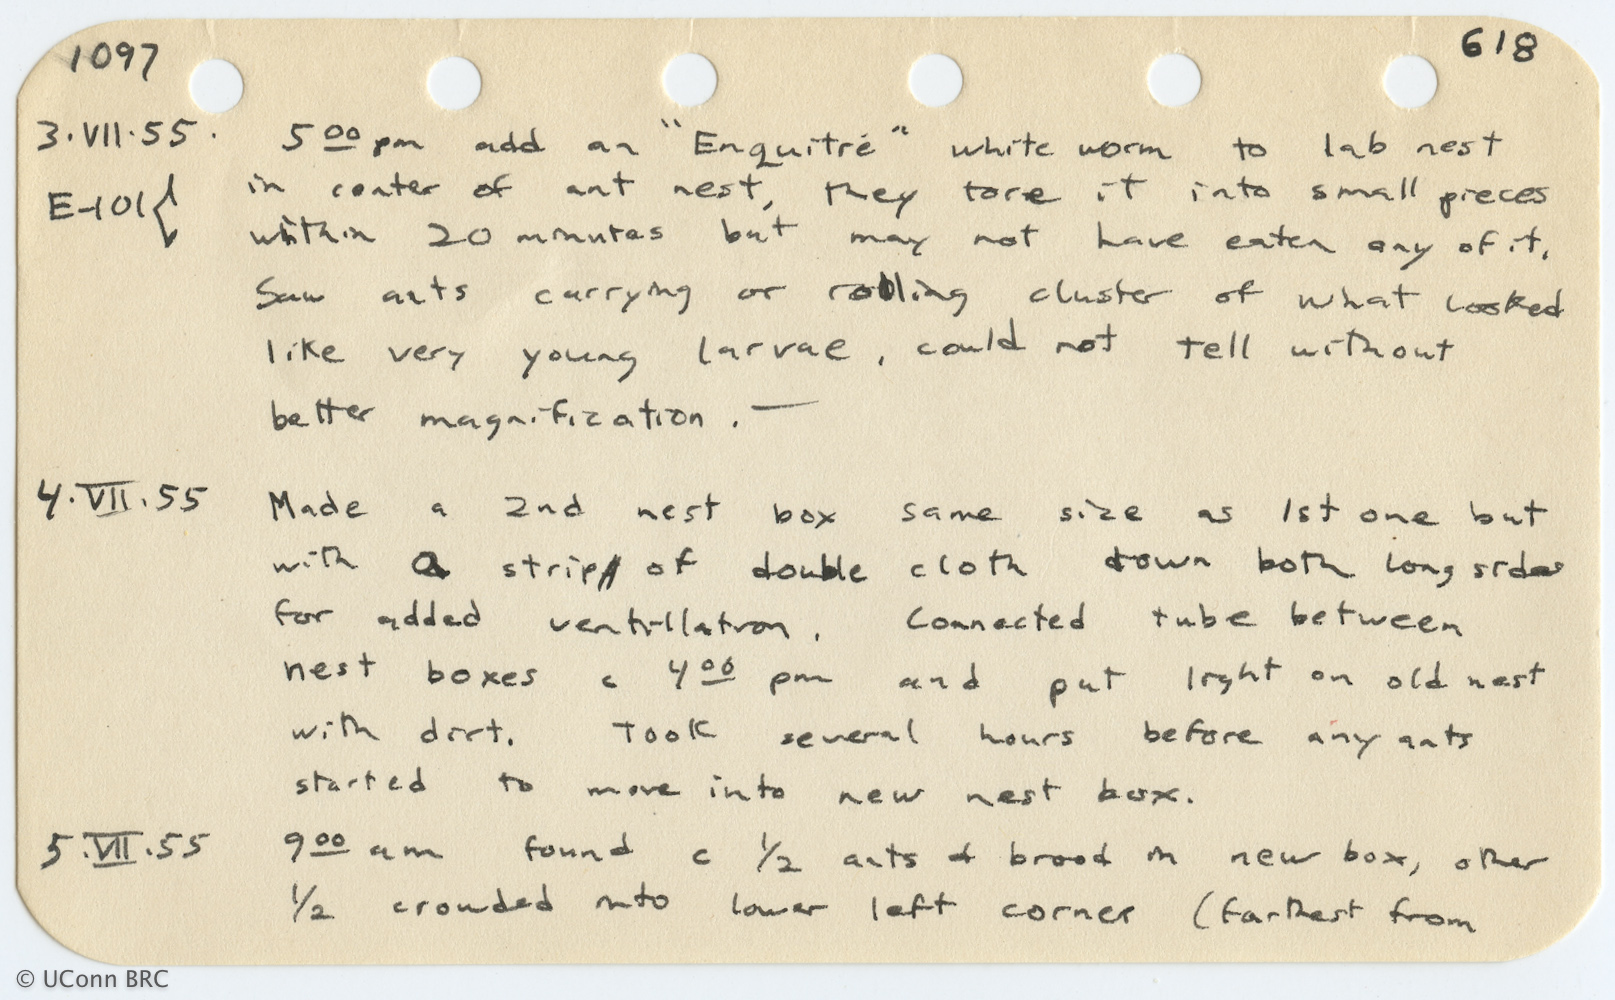 1097 618
3.VII.55. 5 00 pm add an "Enquitré" white worm to lab nest
E-101{ in center of ant nest, they tore it into small pieces
within 20 minutes but may not have eaten any of it.
Saw ants carrying or rolling cluster of what looked
like very young larvae, could not tell without
better magnification. —
4.VII.55 Made a 2nd nest box same size as 1st one but
with a strip of double cloth down both long sides
for added ventillation. Connected tube between
nest boxes c 4 00 pm and put light on old nest
with dirt. Took several hours before any ants
started to move into new nest box.
5.VII.55 9 00 am found c 1/2 ants & brood in new box, other
1/2 crowded into lower left corner (farthest from
© UConn BRC